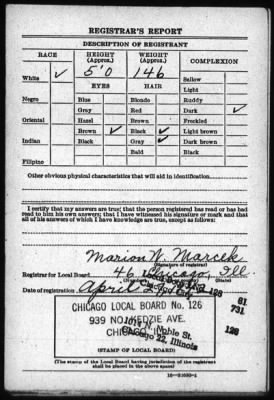 REGISTRAR'S REPORT
DESCRIPTION OF REGISTRANT
RACE HEIGHT (Approx.) WEIGHT (Approx.) COMPLEXION
White ✓ 5'0 146 Sallow
EYES HAIR Light
Negro Blue Blonde Ruddy
Gray Red Dark ✓
Oriental Hazel Brown Freckled
Brown ✓ Black ✓ Light brown
Indian Black Gray ✓ Dark brown
Bald Black
Filipino
Other obvious physical characteristics that will aid in identification
I certify that my answers are true; that the person registered has read or has had
read to him his own answers; that I have witnessed his signature or mark and that
all of his answers of which I have knowledge are true, except as follows:
Marion W. Marcek
(Signature of registrar)
Registrar for Local Board 46 Chicago, Ill.
Date of registration April
128 61
731
CHICAGO LOCAL BOARD No. 126
939 NO. KEDZIE AVE.
CHICAGO
Noble St.
Chicago 22, Illinois
128
(STAMP OF LOCAL BOARD)
(The stamp of the Local Board having jurisdiction of the registrant
shall be placed in the above space)